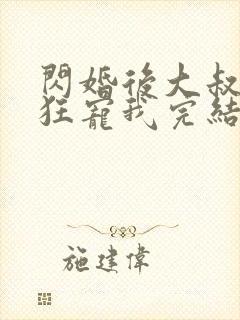 閃婚後大叔
狂寵我完結
施建偉